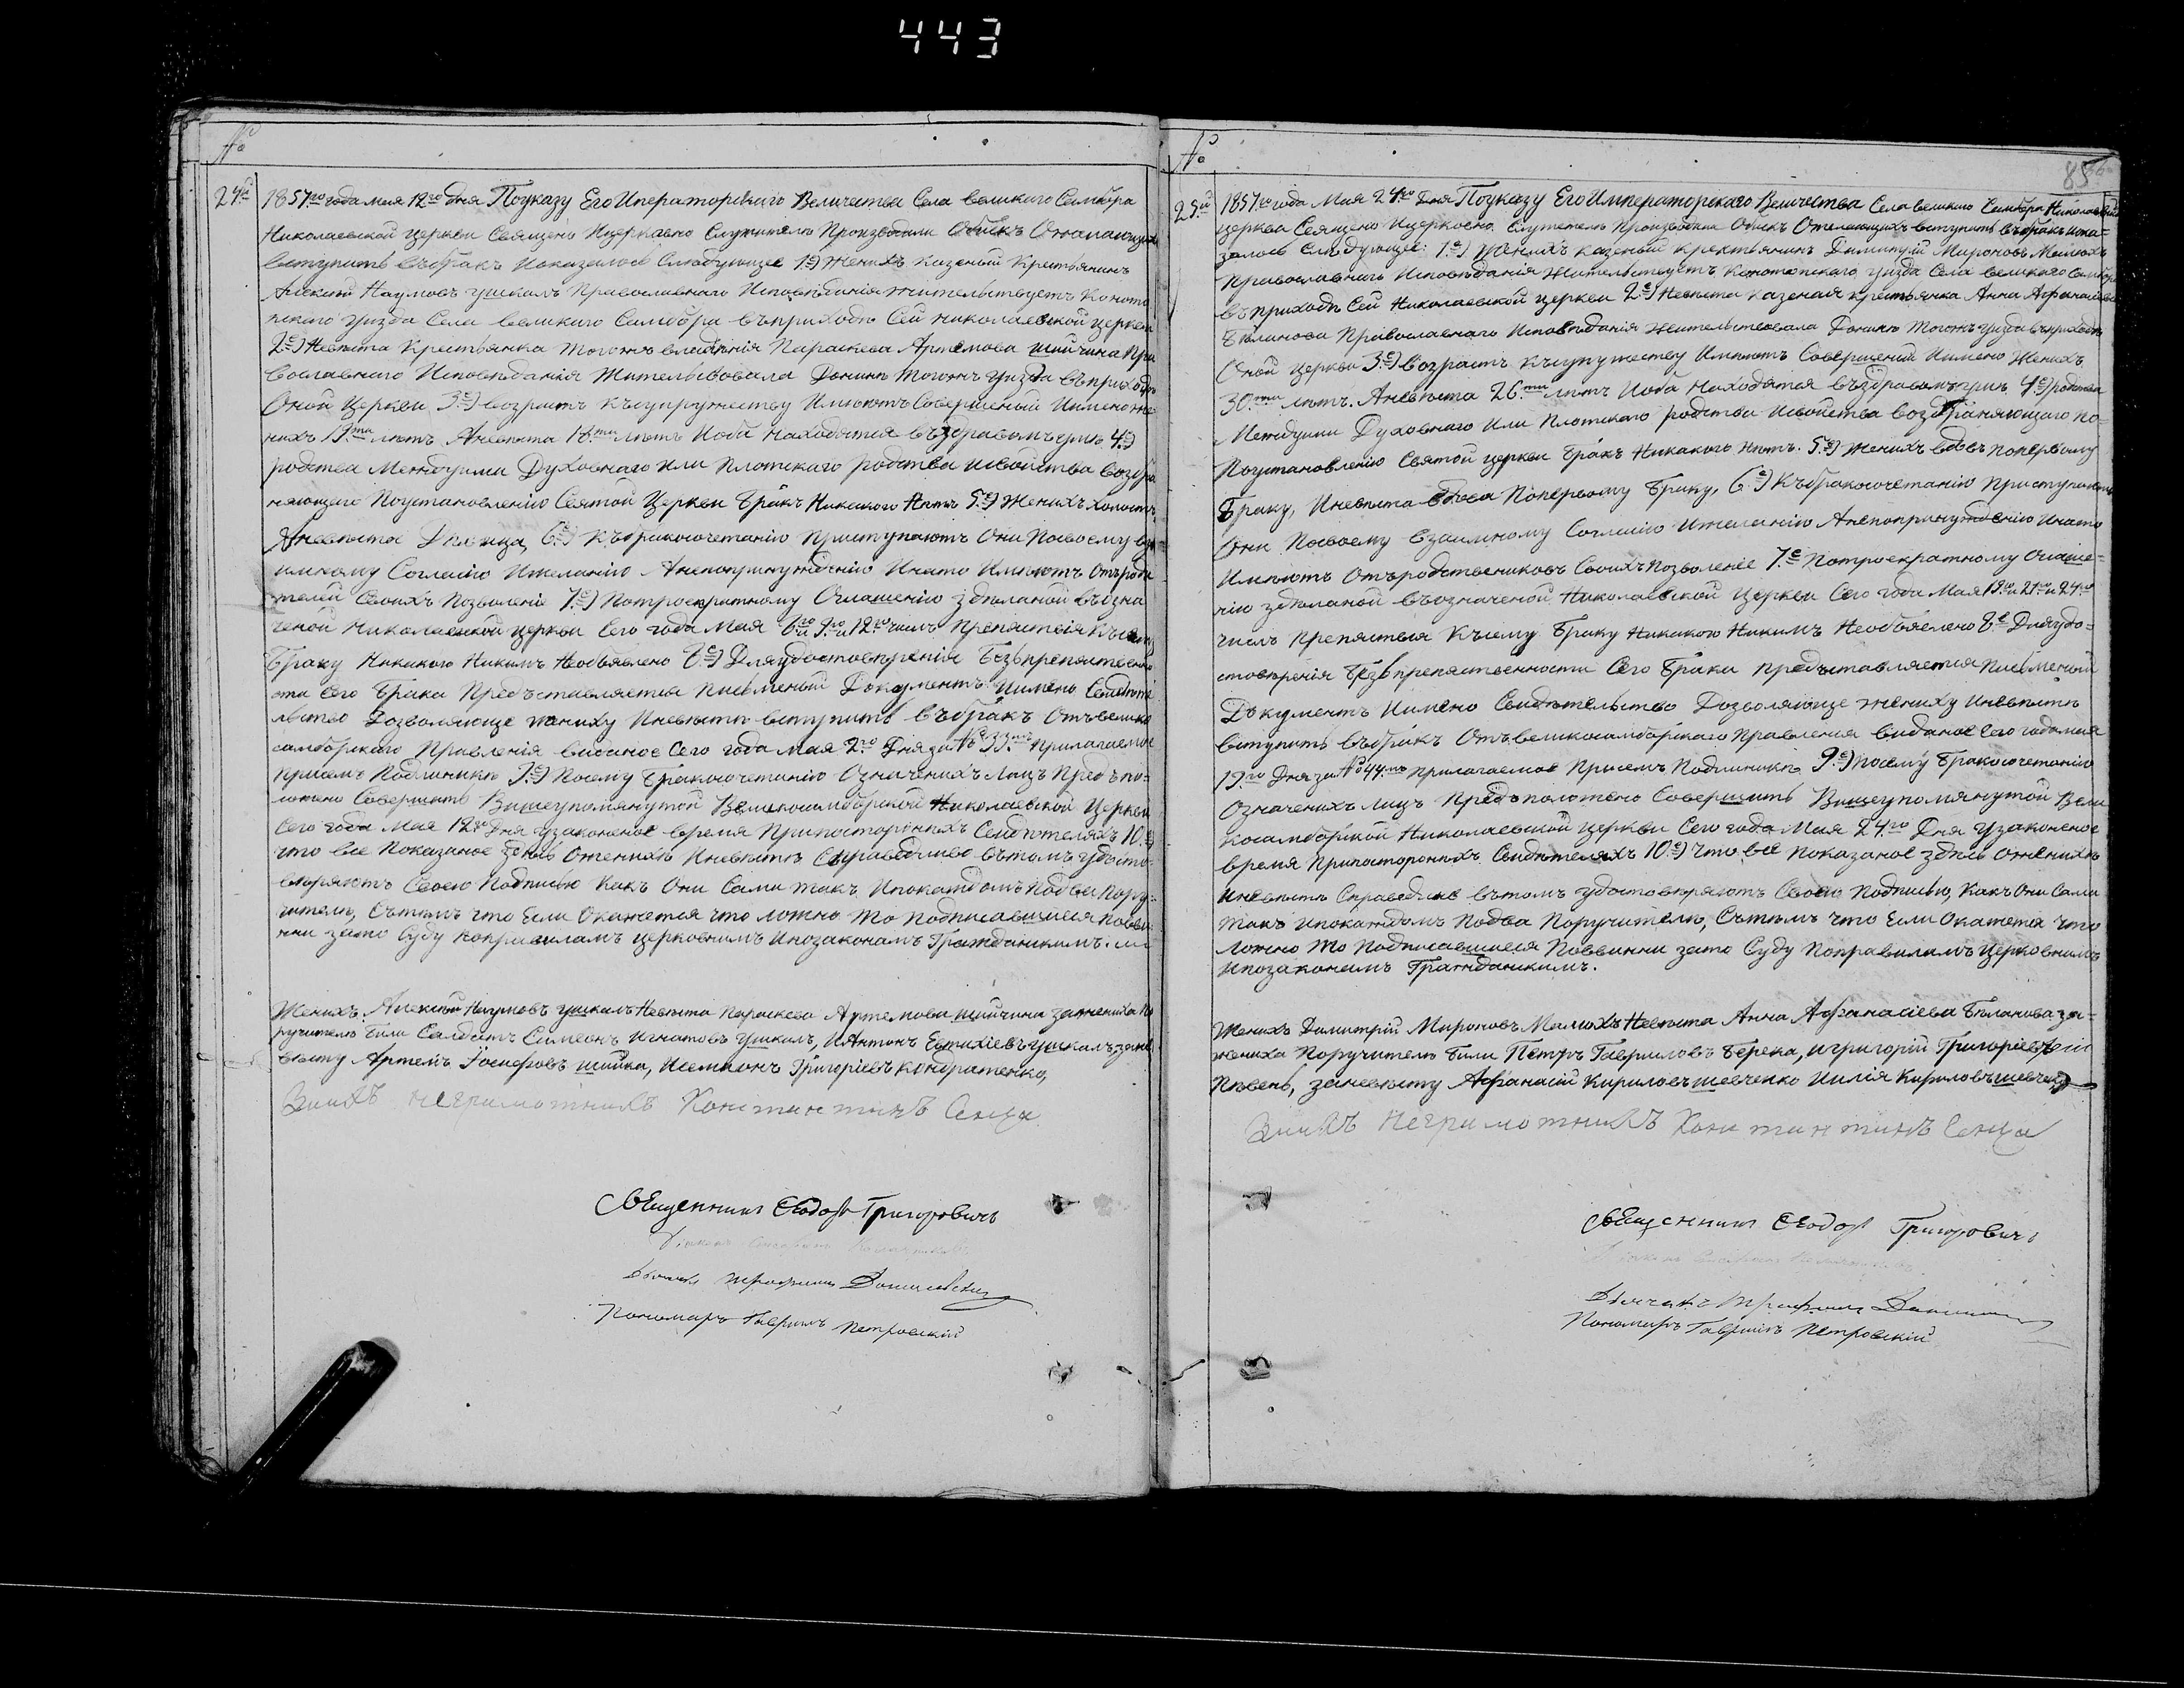 443
№
24й
1857го года мая 12го дня По указу Его Императорскаго Величества Села великаго Самбора
Николаевской церкви Священо Ицерковно Служители Производили Обискъ Ожелающихъ
вступить въбракъ Ипоказалось Следующее 1е) Женихъ казеный Крестьянинъ
Алексий Наумовъ ушкалъ Православнаго Исповѣданія жительствуетъ Коното
пскаго уизда Села великаго Самбора въприходѣ Сей николаевской церкви
2е) Невѣста Крестьянка тогожъ владѣнія Параскева Артемова шийчина Пра
вославнаго Исповѣданія Жительствовала Донинѣ тогожъ уизда въприходѣ
Оной Церкви 3е) возрастъ къ супружеству Имѣютъ Совершеный Иимено же
нихъ 19ти лѣтъ Аневѣста 18ти лѣтъ Иоба находятся въздравомъ умѣ 4е)
родства Междуими Духовнаго или плотскаго родства исвойства возбра
няющаго Поустановленію Святой Церкви бракъ Никакого Нѣтъ 5е) Женихъ холостъ,
Аневѣста Дѣвица, 6е) къбракосочетанію приступаютъ Они Посвоему вза
имному Согласію Ижеланію Анепопринужденію Инато Имѣютъ Отъроди
телей Своихъ позволеніе 7е) Потроекратному Оглашенію здѣланой въозна
ченой Николаевской церкви Сего года Мая 6го 9го и 12го числъ Препятствія Късему
Браку Никакого Никимъ Необъявлено 8е) Дляудостовѣренія Безъпрепятственно
сти Сего Брака Предъставляется Письменый Документъ Иимено Свидѣте
льство Дозволяюще жениху Иневѣстѣ вступить въбракъ Отъвелико
самборскаго Правленія виданое Сего года Мая 2го Дня за № 33мъ Прилагаемое
присемъ Подлиникѣ 9е) Посему бракосочетанію Означенихъ Лицъ Предъпо-
ложено Совершить Вишеупомянутой Великосамборской Николаевской Церкви
Сего года Мая 12го Дня узаконеное время Припосторонихъ Свидѣтеляхъ 10е)
что все Показаное здѣсь Оженихѣ Иневѣстѣ Справедливо вътомъ удосто-
веряютъ Своею Подписью Какъ Они Сами такъ Ипокаждомъ Подва Пору-
чители, Сътимъ что Если Окажется что ложно То Подписавшиеся Повин
ни зато Суду поправиламъ церковнимъ Ипозаконамъ Гражданскимъ.
Женихъ Алексий Наумовъ ушкалъ Невѣста Параскева Артемова шийчина зажениха По
ручители Били Салдатъ Симеонъ Игнатовъ ушкалъ, ИАнтонъ Евтихіевъ ушкалъ, зане
вѣсту Артемъ Іосифовъ шийка, Исемионъ Григоріевъ кондратенко,
Заихъ неграмотнихъ Константинъ Сенча
Священникъ Феодоръ Григоровичъ
Дьячокъ Трофимъ Данилевский
Пономарь Гавриилъ Петровский
№
85
25й
1857го года Мая 24го Дня Поуказу Его Императорскаго Величества Села великаго Самбора Николаевской
церкви Священо Ицерковно Служители Производили Обискъ Ожелающихъ вступить въбракъ ипока-
залось Слѣдующее: 1е) Женихъ казеный крестьянинъ Димитрій Мироновъ Малюхъ
Православнаго Исповѣданія Жительствуетъ Конотопскаго уизда Села великаго Самбора
въприходѣ Сей Николаевской церкви 2е) Невѣста казеная крестьянка Анна Афанасіева
Биланова Православнаго Исповѣданія Жительствовала Донинѣ тогожъ уизда въприходѣ
Оной церкви 3е) возрастъ къ супружеству Имѣютъ Совершений Иимено Женихъ
30ти лѣтъ. Аневѣста 26ти лѣтъ Иоба находятся въздравомъ умѣ 4е) родства
Междуими Духовнаго Или Плотскаго родства Исвойства возбраняющаго по-
Поустановленію Святой церкви бракъ Никакого Нѣтъ. 5е) Женихъ вдовъ поперьвому
Браку, Иневѣста вдова Поперьвому Браку, 6е) Къбракосочетанію Приступаютъ
Они Посвоему взаимному Согласію Ижеланію Анепопринужденію Инато
Имѣютъ Отъродствениковъ Своихъ Позволеніе 7е Потроекратному Оглаше-
нію здѣланой въозначеной Николаевской церкви Сего года Мая 19го и 21го и 24го
числъ Препятствія Късему Браку Никакого Никимъ Необъявлено 8е Дляудо-
стовѣренія безъпрепятственности Сего брака Предъставляется Письменый
Документъ Иимено Свидѣтельство Дозволяюще жениху Иневѣстѣ
вступить въбракъ Отъвеликосамборскаго Правления виданое Сего года мая
19го Дня за № 44мъ прилагаемое Присемъ Подлиникѣ 9е) Посему Бракосочетанію
Означенихъ лицъ Предъположено Совершить Вишеупомянутой Вели
косамборской Николаевской церкви Сего года Мая 24го Дня узаконеное
время Припосторонихъ Свидѣтеляхъ 10е) что все Показаное здѣсь Оженихѣ
Иневѣстѣ Справедливо вътомъ удостовѣряютъ Своею Подписью, какъ Они Сами
такъ Ипокаждомъ Подва Поручители, Сътимъ что Если Окажется что
Ложно то Подписавшиеся Повинни зато Суду Поправиламъ Церковнимъ
Ипозаконамъ Гражданскимъ.
Женихъ Димитрій Мироновъ Малюхъ Невѣста Анна Афанасіева Биланова за-
жениха Поручители били Петръ Гавриловъ Берека, игригорій Григоріевъ
Пивень, заневѣсту Афанасій Кириловъ шевченко Иилія Кириловъ шевченко
Заихъ неграмотнихъ Константинъ Сенча
Священникъ Феодоръ Григоровичъ
Дьячокъ Трофимъ
Пономарь Гавриилъ Петровский